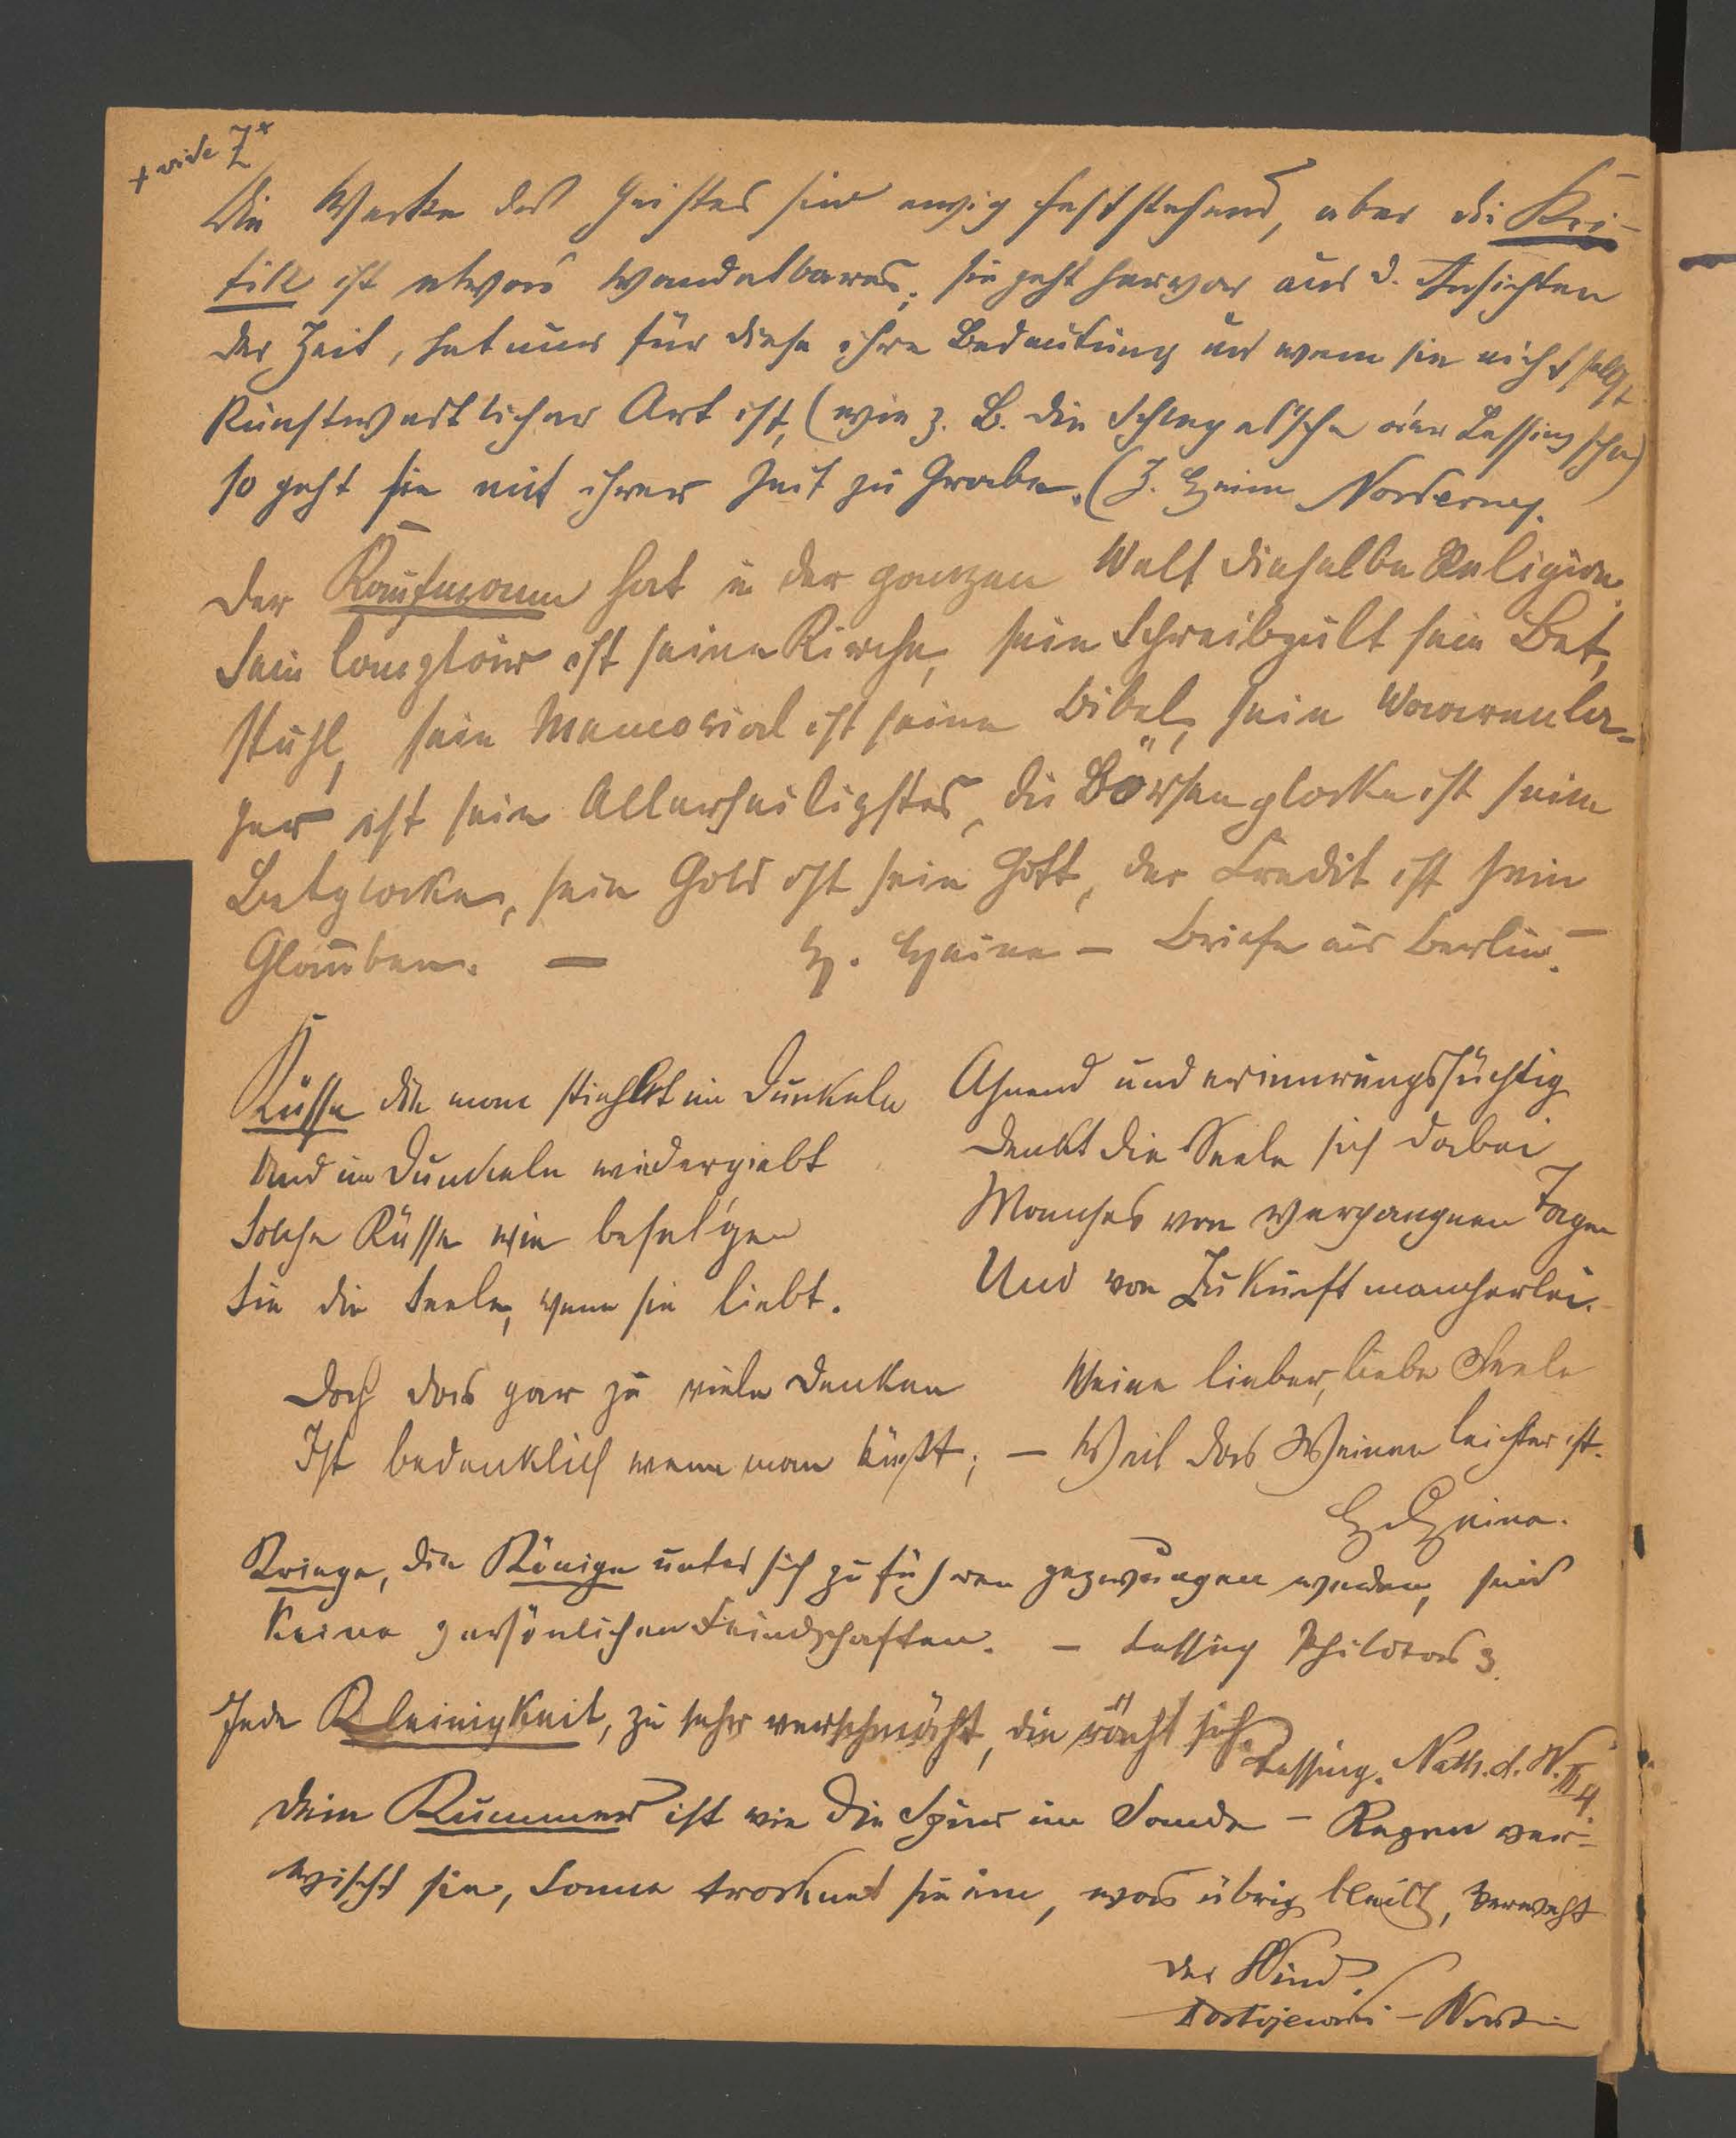 + vide Z*
Die Werke des Geistes sind ewig feststehend, aber die Kri-
tik ist etwas Wandelbares, sie geht hervor aus d. Ansichten
der Zeit, hat nur für diese ihre Bedeutung und wenn sie nicht selbst
kunstwerthlicher Art ist, (wie z. B. die Schlegel'sche oder Lessingsche)
so geht sie mit ihrer Zeit zu Grabe. (H. Heine Norderney.
Der Kaufmann hat in der ganzen Welt dieselbe Religion.
Sein Comptoir ist seine Kirche, sein Schreibpult sein Bet,
stuhl, sein Memorial ist seine Bibel, sein Waarenla-
ger ist sein Allerheiligstes, die Börsenglocke ist seine
Betglocke, sein Gold ist sein Gott, der Credit ist sein
Glauben. — H. Heine – Briefe aus Berlin.
Küsse die man stiehlt im Dunkeln
Und im Dunkeln wiedergiebt
Solche Küsse wie beselgen
Sie die Seele, wenn sie liebt.
Ahnend und erinnrungssüchtig
Denkt die Seele sich dabei
Manches von vergangnen Tagen
Und von Zukunft mancherlei.
Doch das gar zu viele Denken
Ist bedenklich wenn man küßt; –
Weine lieber, liebe Seele
Weil das Weinen leichter ist.
H. Heine.
Kriege, die Könige unter sich zu führen gezwungen werden, sind
keine persönlichen Feindschaften. – Lessing Philotas 3.
Jede Kleinigkeit, zu sehr verschmäht, die rächt sich.
Lessing. Nath. d. W. III 4.
Dein Kummer ist wie die Spur im Sande – Regen ver-
wischt sie, Sonne trocknet sie ein, was übrig bleibt, verweht
der Wind.
Dostojewski –